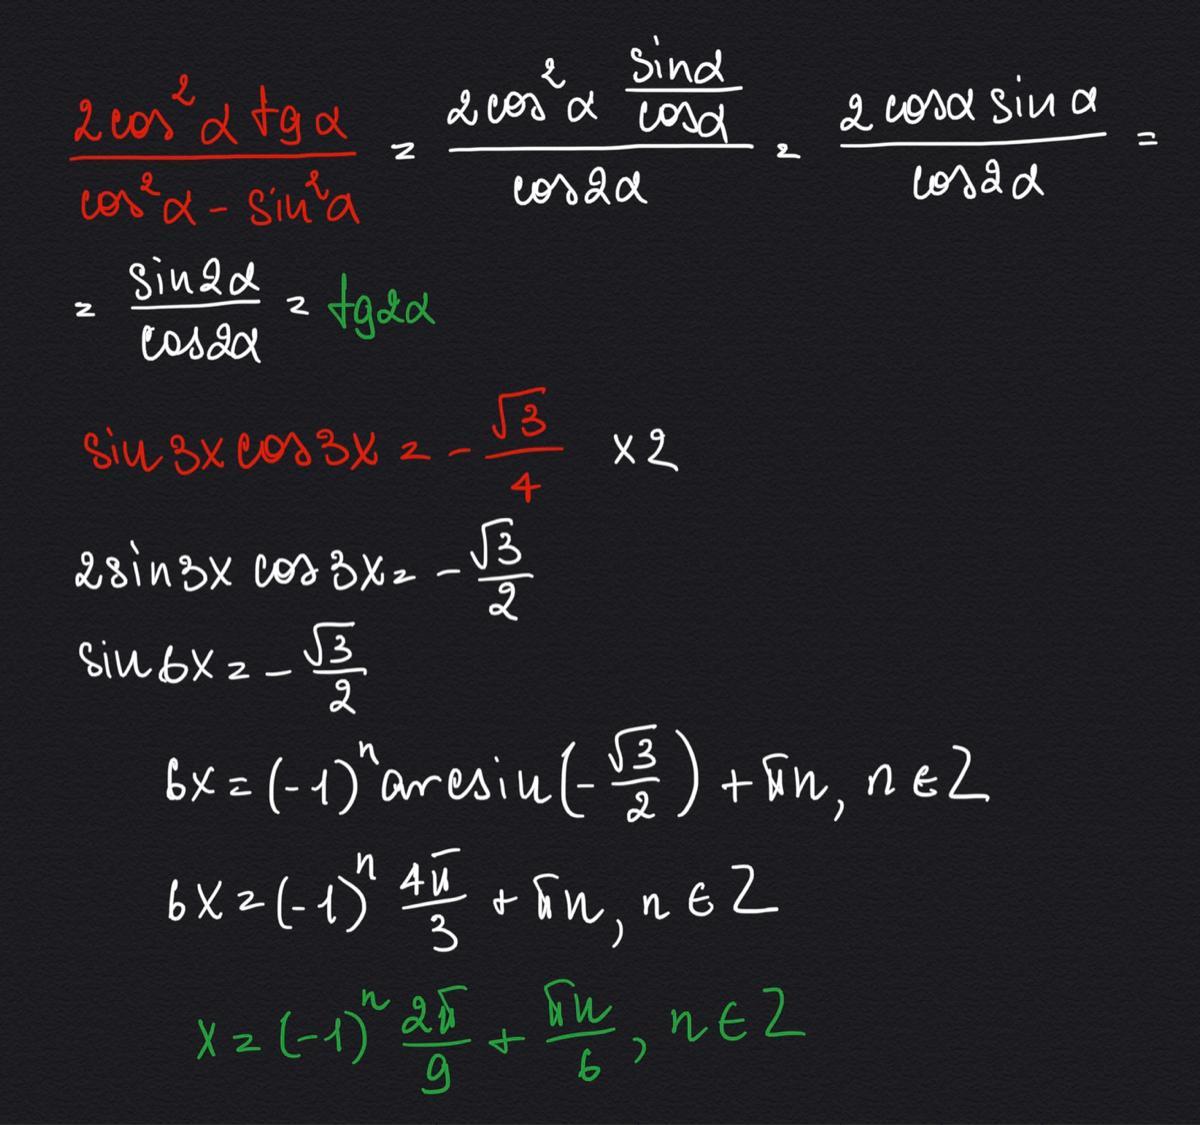 2cos²α tgα / cos²α - sin²α = 2cos²α sinα/cosα / cos2α = 2cosα sinα / cos2α =
= sin2α / cos2α = tg2α
sin3x cos3x = -√3/4 ×2
2sin3x cos3x = -√3/2
sin6x = -√3/2
6x = (-1)ⁿ arcsin(-√3/2) + πn, n ∈ Z
6x = (-1)ⁿ 4π/3 + πn, n ∈ Z
x = (-1)ⁿ 2π/9 + πn/6, n ∈ Z